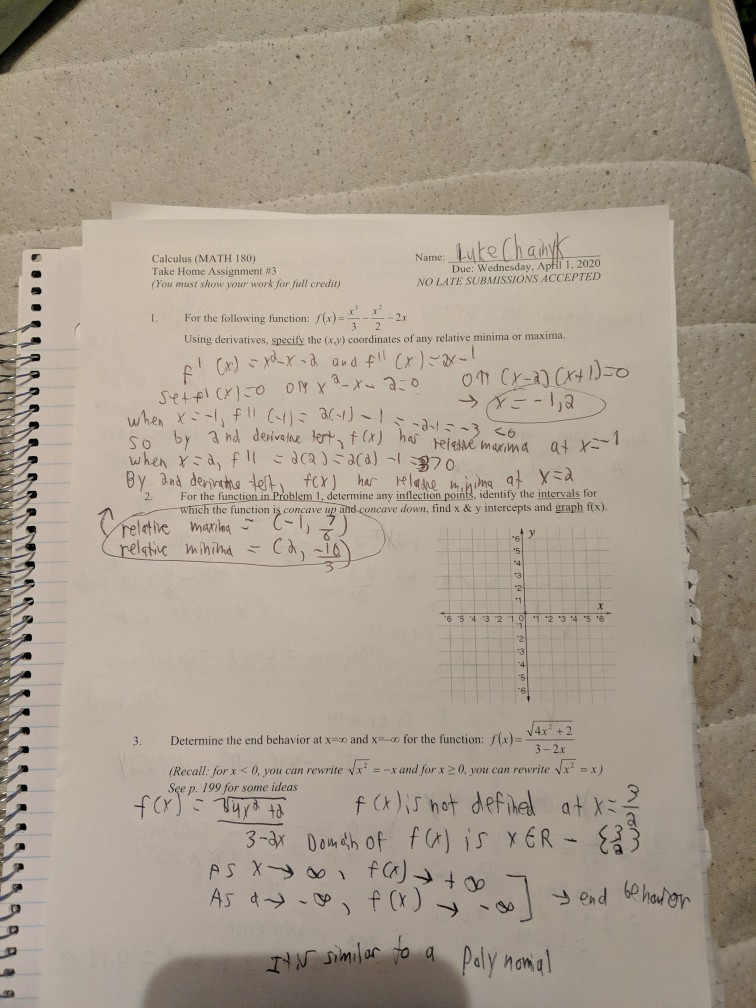 Calculus (MATH 180)
Name: Luke Chainyk
Take Home Assignment #3
Due: Wednesday, April 1, 2020
(You must show your work for full credit)
NO LATE SUBMISSIONS ACCEPTED
1. For the following function: f(x) = x³/3 - x²/2 - 2x
Using derivatives, specify the (x,y) coordinates of any relative minima or maxima.
f'(x) = x²-x-2 and f''(x) = 2x-1
set f'(x)=0 or x²-x-2=0 or (x-2)(x+1)=0
→ x = -1,2
when x=-1, f''(-1) = 2(-1)-1 = -2-1 = -3 <0
So by 2nd derivative test, f(x) has relative maxima at x=-1
when x=2, f'' = 2(2) = 2(2)-1 = 3>0
By 2nd derivative test, f(x) has relative minima at x=2
2. For the function in Problem 1, determine any inflection points, identify the intervals for
which the function is concave up and concave down, find x & y intercepts and graph f(x).
relative maxima = (-1, 7/6)
relative minima = (2, -10/3)
y
6
5
4
3
2
1
x
6 5 4 3 2 1 0 1 2 3 4 5 6
1
2
3
4
5
6
3. Determine the end behavior at x=∞ and x=-∞ for the function: f(x) = √(4x²+2)/(3-2x)
(Recall: for x < 0, you can rewrite √x² = -x and for x ≥ 0, you can rewrite √x² = x)
See p. 199 for some ideas
f(x) = √(4x²+2)/(3-2x) f(x) is not defined at x = 3/2
Domain of f(x) is x∈R - {3/2}
As x→∞, f(x)→+∞
As x→-∞, f(x)→-∞ ] → end behavior
similar to a polynomial